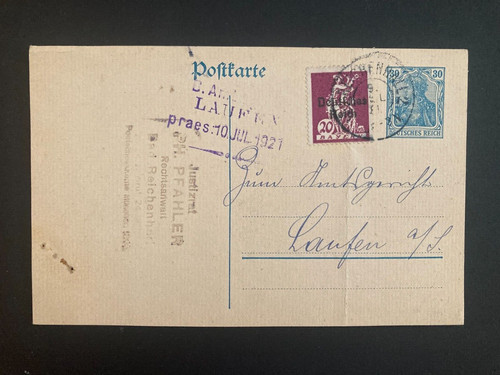 Postkarte
LAUFEN
praes. 10. JUL. 1921
Deutsches
Reich
20
BAYERN
30 30
DEUTSCHES REICH
Justizrat
W. PFAHLER
Rechtsanwalt
Bad Reichenhall
Zum Amtsgericht
Laufen a/S.